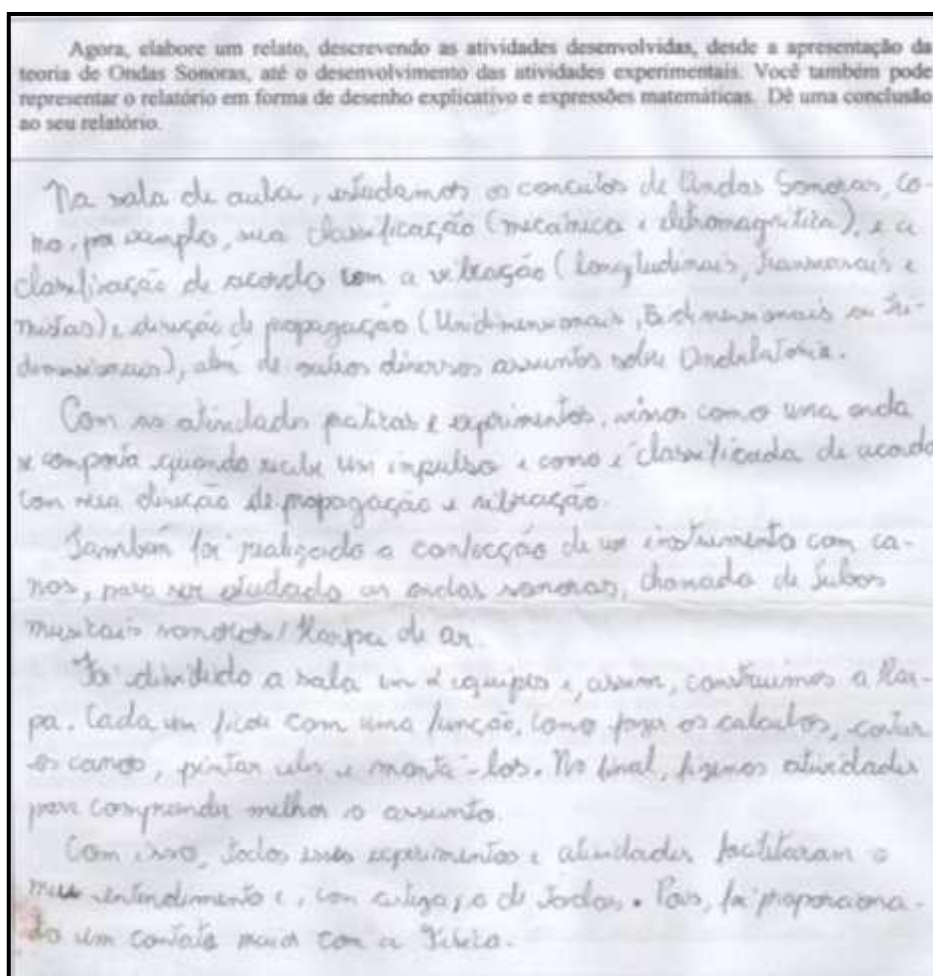 Agora, elabore um relato, descrevendo as atividades desenvolvidas, desde a apresentação da
teoria de Ondas Sonoras, até o desenvolvimento das atividades experimentais. Você também pode
representar o relatório em forma de desenho explicativo e expressões matemáticas. Dê uma conclusão
ao seu relatório.
Na sala de aula, estudamos os conceitos de Ondas Sonoras, co-
mo, por exemplo, sua classificação (mecânica e eletromagnética), e a
classificação de acordo com a vibração (longitudinais, transversais e
mistas) e direção de propagação (Unidimensionais, Bidimensionais ou tri-
dimensionais), além de outros diversos assuntos sobre Ondulatória.
Com as atividades práticas e experimentos, vimos como uma onda
se comporta quando recebe um impulso e como é classificada de acordo
com sua direção de propagação e vibração.
Também foi realizado a confecção de um instrumento com ca-
nos, para ser estudado as ondas sonoras, chamado de Tubos
musicais sonoros/Harpa de ar.
Foi dividido a sala em 2 equipes e, assim, construimos a Har-
pa. Cada um ficou com uma função, como fazer os calculos, cortar
os canos, pintar eles e montá-los. No final, fizemos atividades
para compreender melhor o assunto.
Com isso, todos esses experimentos e atividades facilitaram o
meu entendimento e, com certeza, o de todos. Pois, foi proporciona-
do um contato maior com a Física.